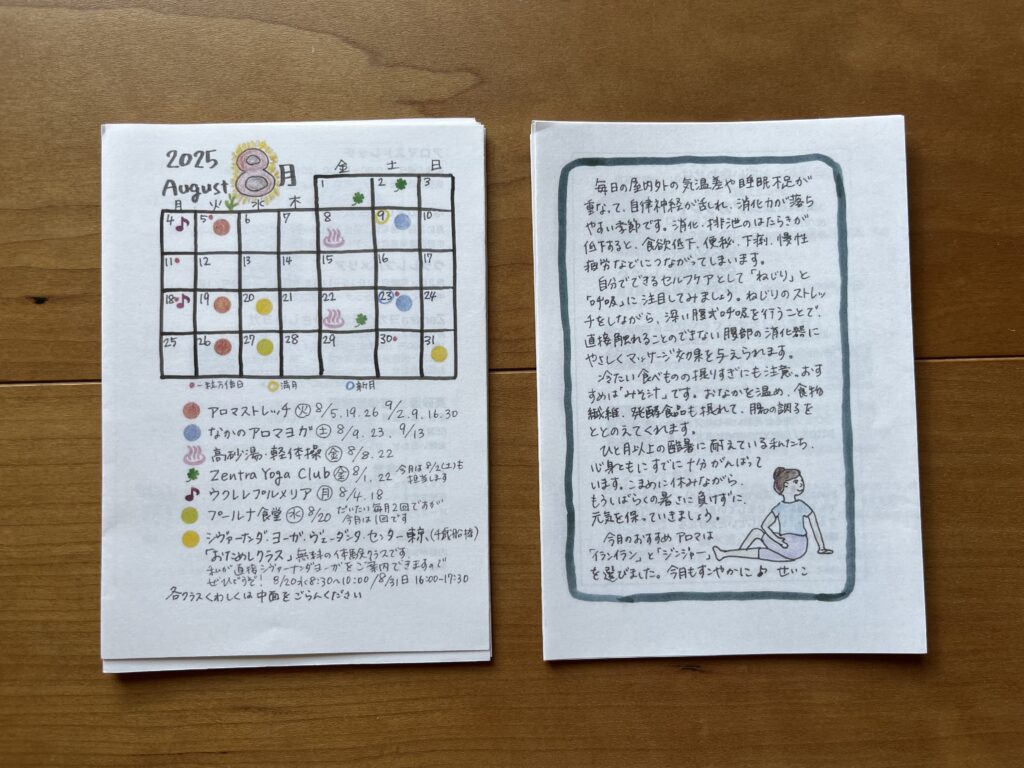 2025
August 8月
月 火 水 木 金 土 日
1 2 3
4 5 6 7 8 9 10
11 12 13 14 15 16 17
18 19 20 21 22 23 24
25 26 27 28 29 30 31
一粒万倍日 満月 新月
アロマストレッチ 火 8/5.19.26 9/2.9.16.30
なかのアロマヨガ 土 8/9.23. 9/13
高砂湯・軽体操 金 8/8.22
Zentra Yoga Club 金 8/1.22 今月は8/2(土)も
担当します
ウクレレプルメリア 月 8/4.18
プールナ食堂 水 8/20 だいたい毎月2回ですが
今月は1回です
シヴァーナンダ・ヨーガ・ヴェーダンタ・センター東京、(千歳船橋)
「おためしクラス」無料の体験クラスです。
私が直接シヴァーナンダヨーガをご案内できますので
ぜひどうぞ! 8/20水8:30~10:00 /8/31日 16:00-17:30
各クラスくわしくは中面をごらんください
毎日の屋内外の気温差や睡眠不足が
重なって、自律神経が乱れ、消化力が落ち
やすい季節です。消化、排泄のはたらきが
低下すると、食欲低下、便秘、下痢、慢性
疲労などにつながってしまいます。
自分でできるセルフケアとして「ねじり」と
「呼吸」に注目してみましょう。ねじりのストレッ
チをしながら、深い腹式呼吸を行うことで、
直接触れることのできない腹部の消化器に
やさしくマッサージ効果を与えられます。
冷たい食べもの摂りすぎにも注意。おす
すめは「みそ汁」です。おなかを温め、食物
繊維、発酵食品も摂れて、腸の調子を
ととのえてくれます。
ひと月以上の酷暑に耐えている私たち、
心身ともにすでに十分がんばって
います。こまめに休みながら、
もうしばらくの暑さに負けずに、
元気を保っていきましょう。
今月のおすすめアロマは
「イランイラン」と「ジンジャー」
を選びました。今月もすこやかに♪ せいこ